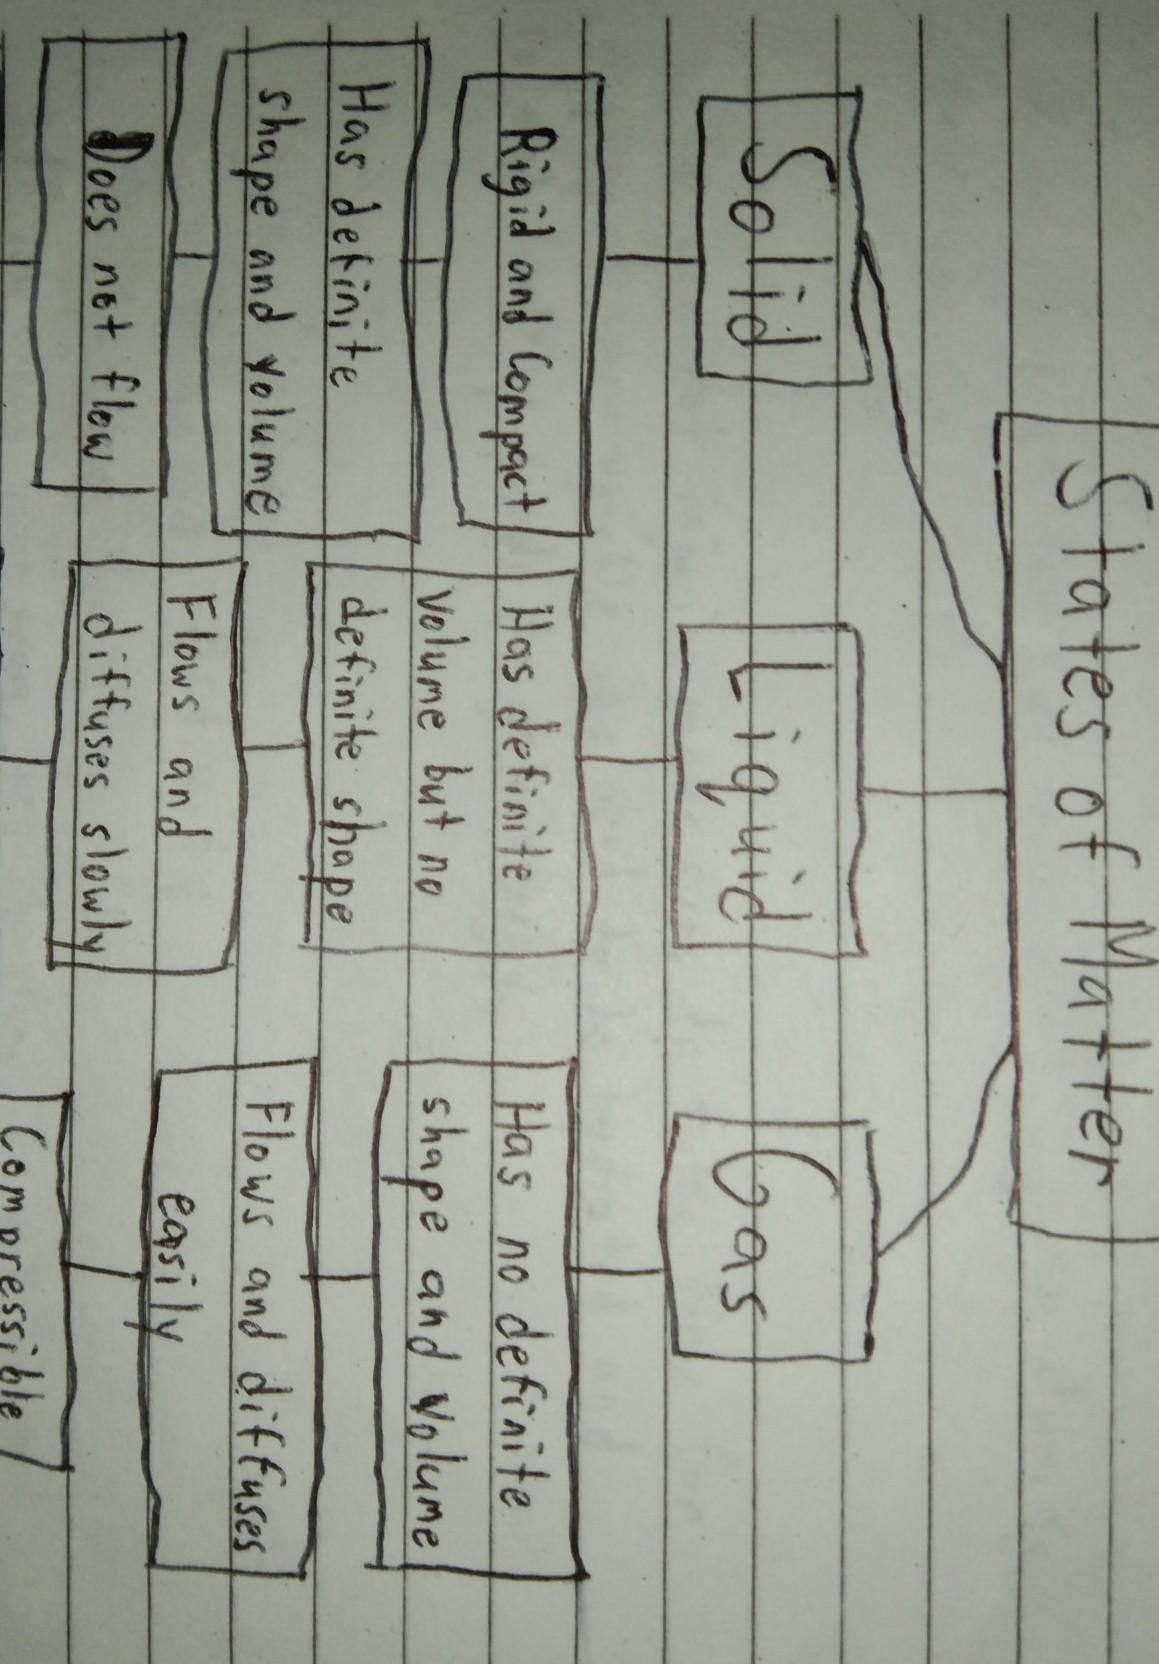 States of Matter
Solid
Rigid and Compact
Has definite
shape and volume
Does not flow
Liquid
Has definite
volume but no
definite shape
Flows and
diffuses slowly
Gas
Has no definite
shape and volume
Flows and diffuses
easily
Compressible